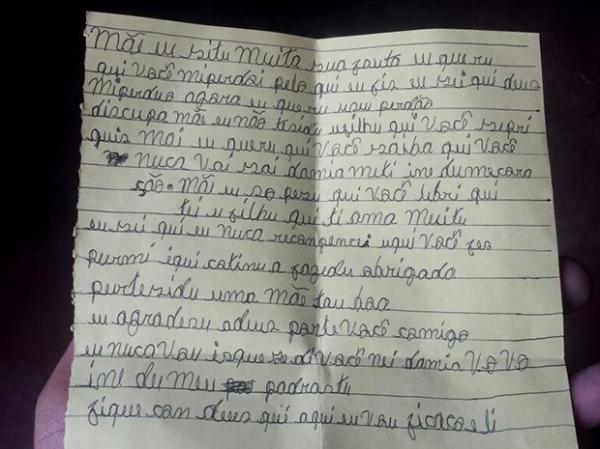 Mãi eu situ muita sua fauta eu queru
qui você miperdoi pelo qui eu fis eu sei qui deus
miperdua agora eu queru u seu perdão
discupa mãi eu não te sidu u filhu qui você sepri
quis mai eu queru qui você saiba qui você
nuca vai sai da mia miti ine du meu cora
ção. Mãi eu so pesu qui você lebri qui
tei u filhu qui ti ama muitu
eu sei qui eu nuca recompencei uqui você fes
purmi iqui catinua fazedu obrigado
purtersidu uma mãe tau boa
eu agradesu adeus parte você comigo
eu nuca vou isquese di você nei da mia vovo
ine du meu padrastu
fique con deus qui aqui eu vou fica coeli